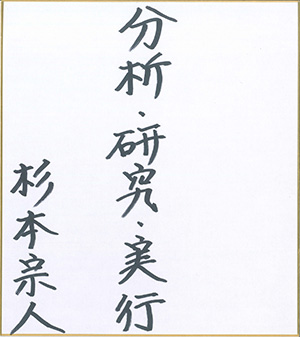 分析、研究、実行
杉本宗人